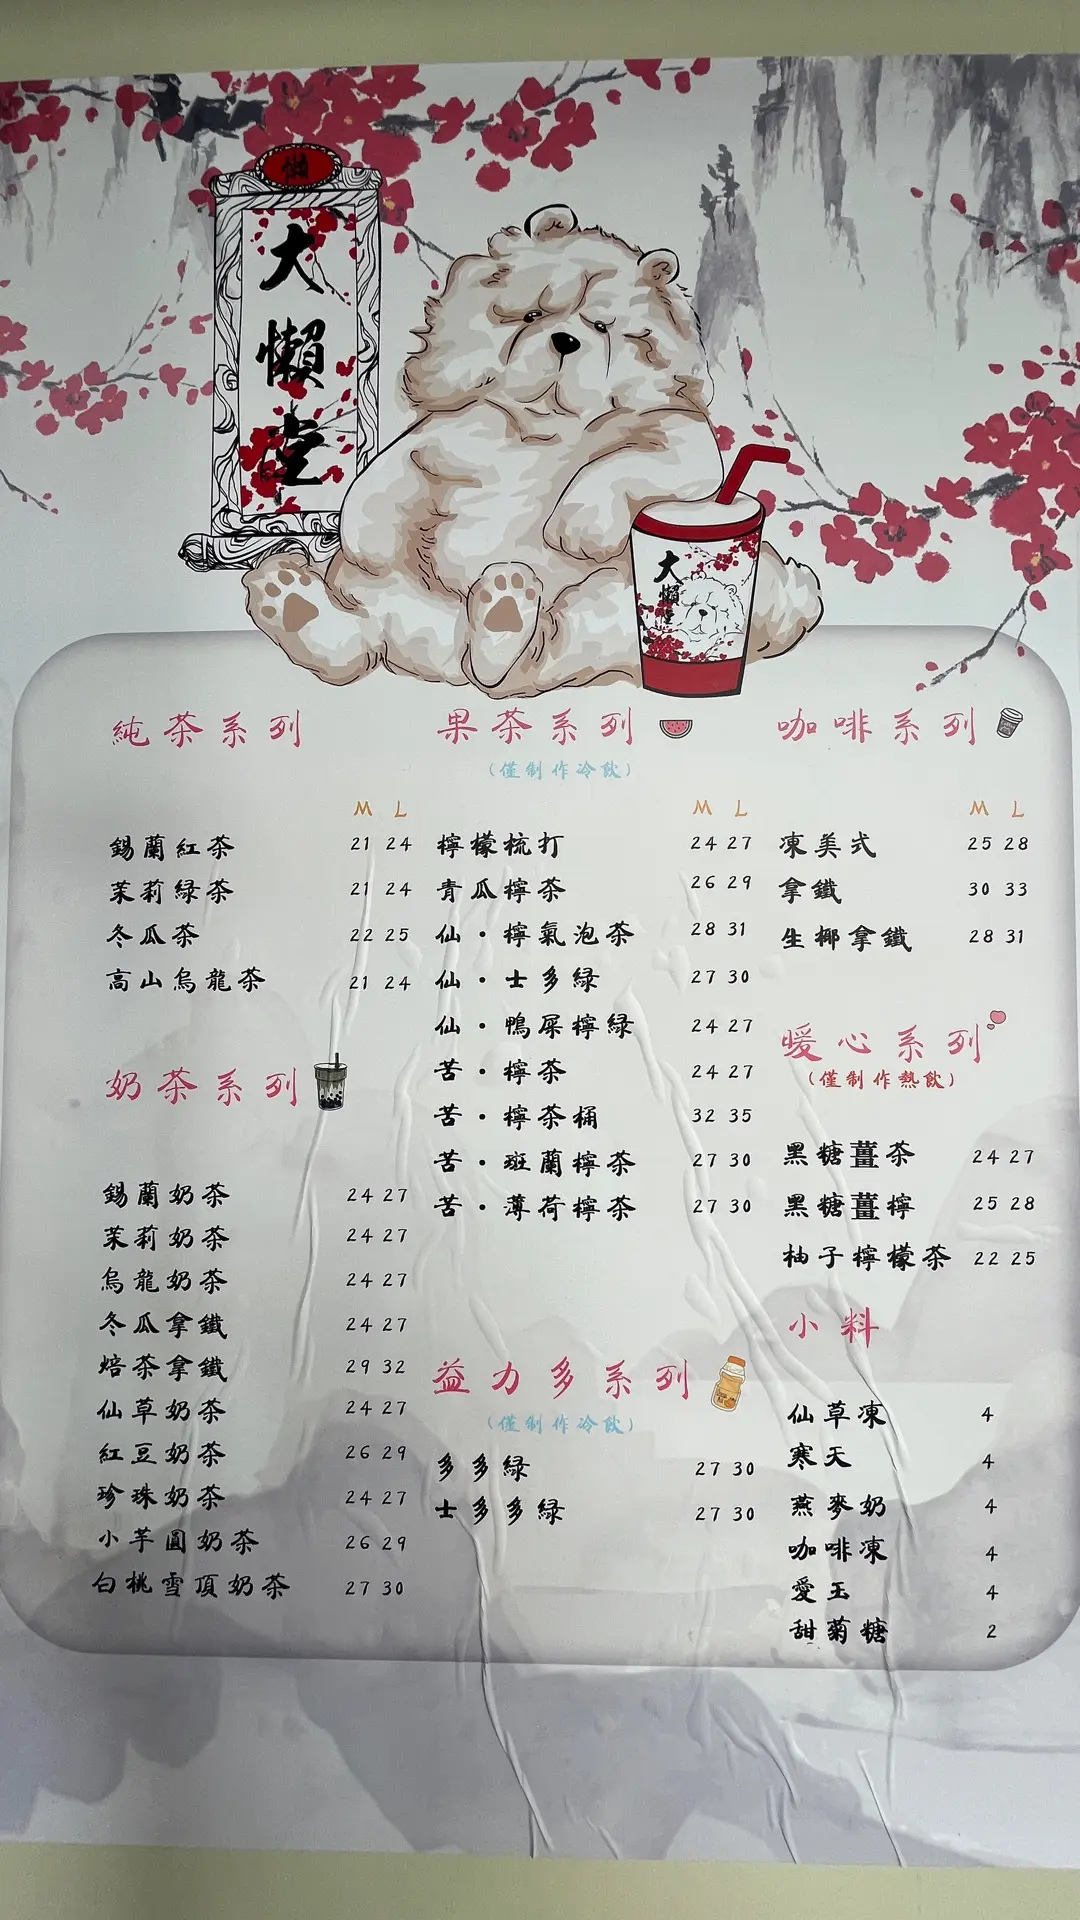 大懶堂
大懶堂
純茶系列
M L
錫蘭紅茶 21 24
茉莉綠茶 21 24
冬瓜茶 22 25
高山烏龍茶 21 24
奶茶系列
錫蘭奶茶 24 27
茉莉奶茶 24 27
烏龍奶茶 24 27
冬瓜拿鐵 24 27
焙茶拿鐵 29 32
仙草奶茶 24 27
紅豆奶茶 26 29
珍珠奶茶 24 27
小芋圓奶茶 26 29
白桃雪頂奶茶 27 30
果茶系列
（僅制作冷飲）
M L
檸檬梳打 24 27
青瓜檸茶 26 29
仙·檸氣泡茶 28 31
仙·士多綠 27 30
仙·鴨屎檸綠 24 27
苦·檸茶 24 27
苦·檸茶桶 32 35
苦·斑蘭檸茶 27 30
苦·薄荷檸茶 27 30
益力多系列
（僅制作冷飲）
多多綠 27 30
士多多綠 27 30
咖啡系列
M L
凍美式 25 28
拿鐵 30 33
生椰拿鐵 28 31
暖心系列
（僅制作熱飲）
黑糖薑茶 24 27
黑糖薑檸 25 28
柚子檸檬茶 22 25
小料
仙草凍 4
寒天 4
燕麥奶 4
咖啡凍 4
愛玉 4
甜菊糖 2